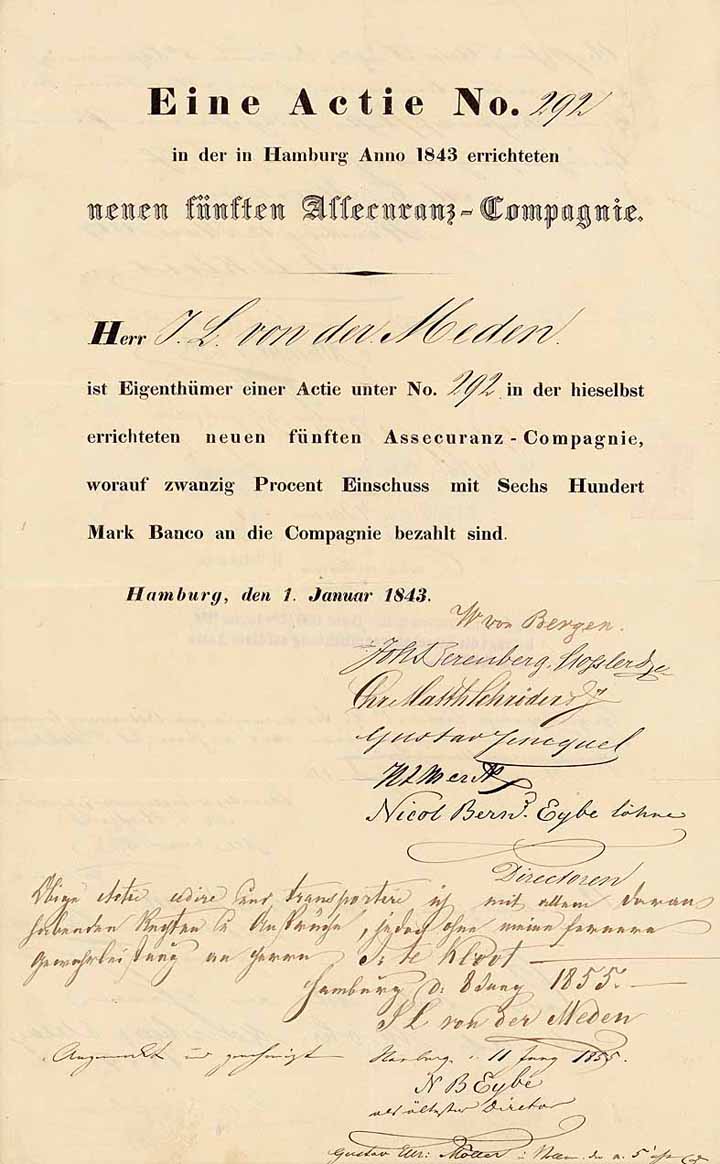 Eine Actie No. 292
in der in Hamburg Anno 1843 errichteten
neuen fünften Assecuranz-Compagnie.
Herr J. L. von der Meden.
ist Eigenthümer einer Actie unter No. 292 in der hieselbst
errichteten neuen fünften Assecuranz-Compagnie,
worauf zwanzig Procent Einschuss mit Sechs Hundert
Mark Banco an die Compagnie bezahlt sind.
Hamburg, den 1. Januar 1843.
W von Bergen.
Joh Berenberg, Gossler &
Chr. Matth Schröder &
Gustav Jencquel
H J Merck
Nicol Bernd. Eybe Söhne
Directoren
Obige Actie cedire und transportere ich mit allem daran
habenden Rechten u Ansprüche, jedoch ohne meine fernere
Gewährleistung an Herrn J: te Kloot
Hamburg d: 8 Juny 1855.
J L von der Meden
Angemerkt und genehmigt Hamburg 11 Juny 1855.
N B Eybe
als ältester Director
Gustav Möller